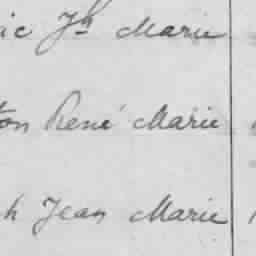 ic Jh Marie
ton René Marie
h Jean Marie